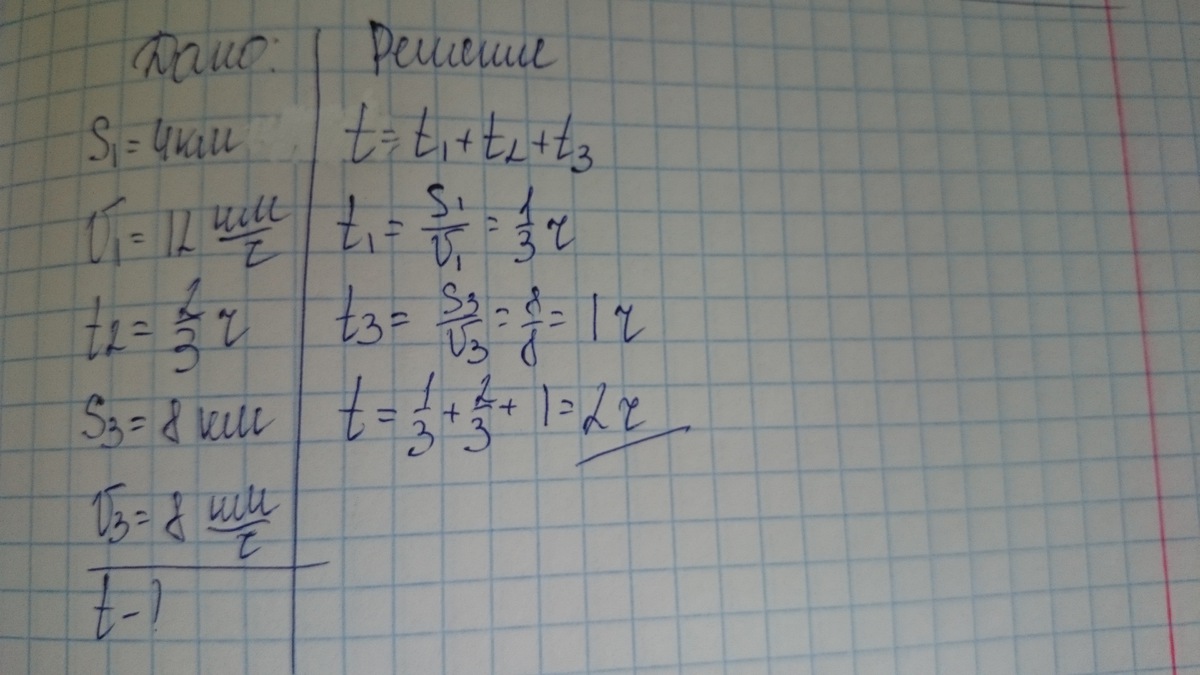 Дано:
S₁ = 4 км
V₁ = 12 км/ч
t₂ = 2/3 ч
S₃ = 8 км
V₃ = 8 км/ч
t - ?
Решение
t = t₁ + t₂ + t₃
t₁ = S₁/V₁ = 1/3 ч
t₃ = S₃/V₃ = 8/8 = 1 ч
t = 1/3 + 2/3 + 1 = 2 ч